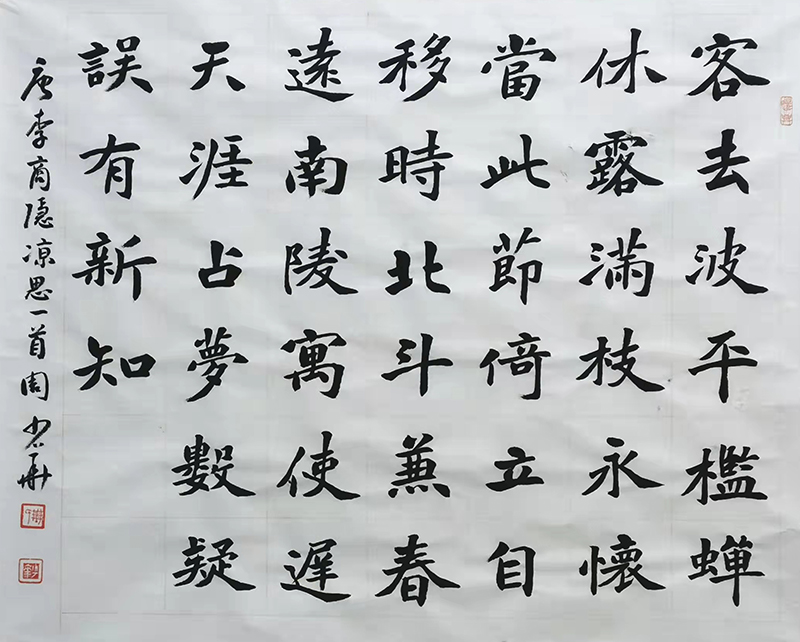 客去波平檻蟬
休露滿枝永懷
當此節倚立自
移時北斗兼春
遠南陵寓使遲
天涯占夢數疑
誤有新知
唐李商隱涼思一首周少華